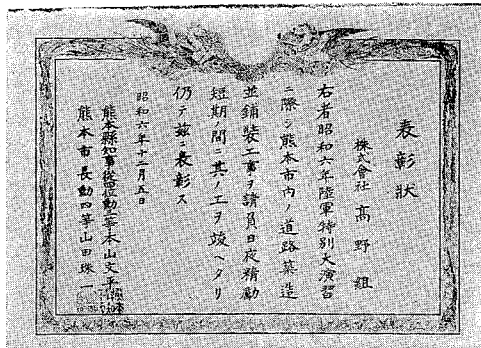 表彰狀
株式會社 高野組
右者昭和六年陸軍特別大演習
ニ際シ熊本市内ノ道路築造
並鋪裝工事ヲ請負日夜精勵
短期間ニ其ノ工ヲ竣ヘタリ
仍テ玆ニ表彰ス
昭和六年十二月五日
熊本縣知事從四位勳三等本山文平
熊本市長勳四等山田珠一